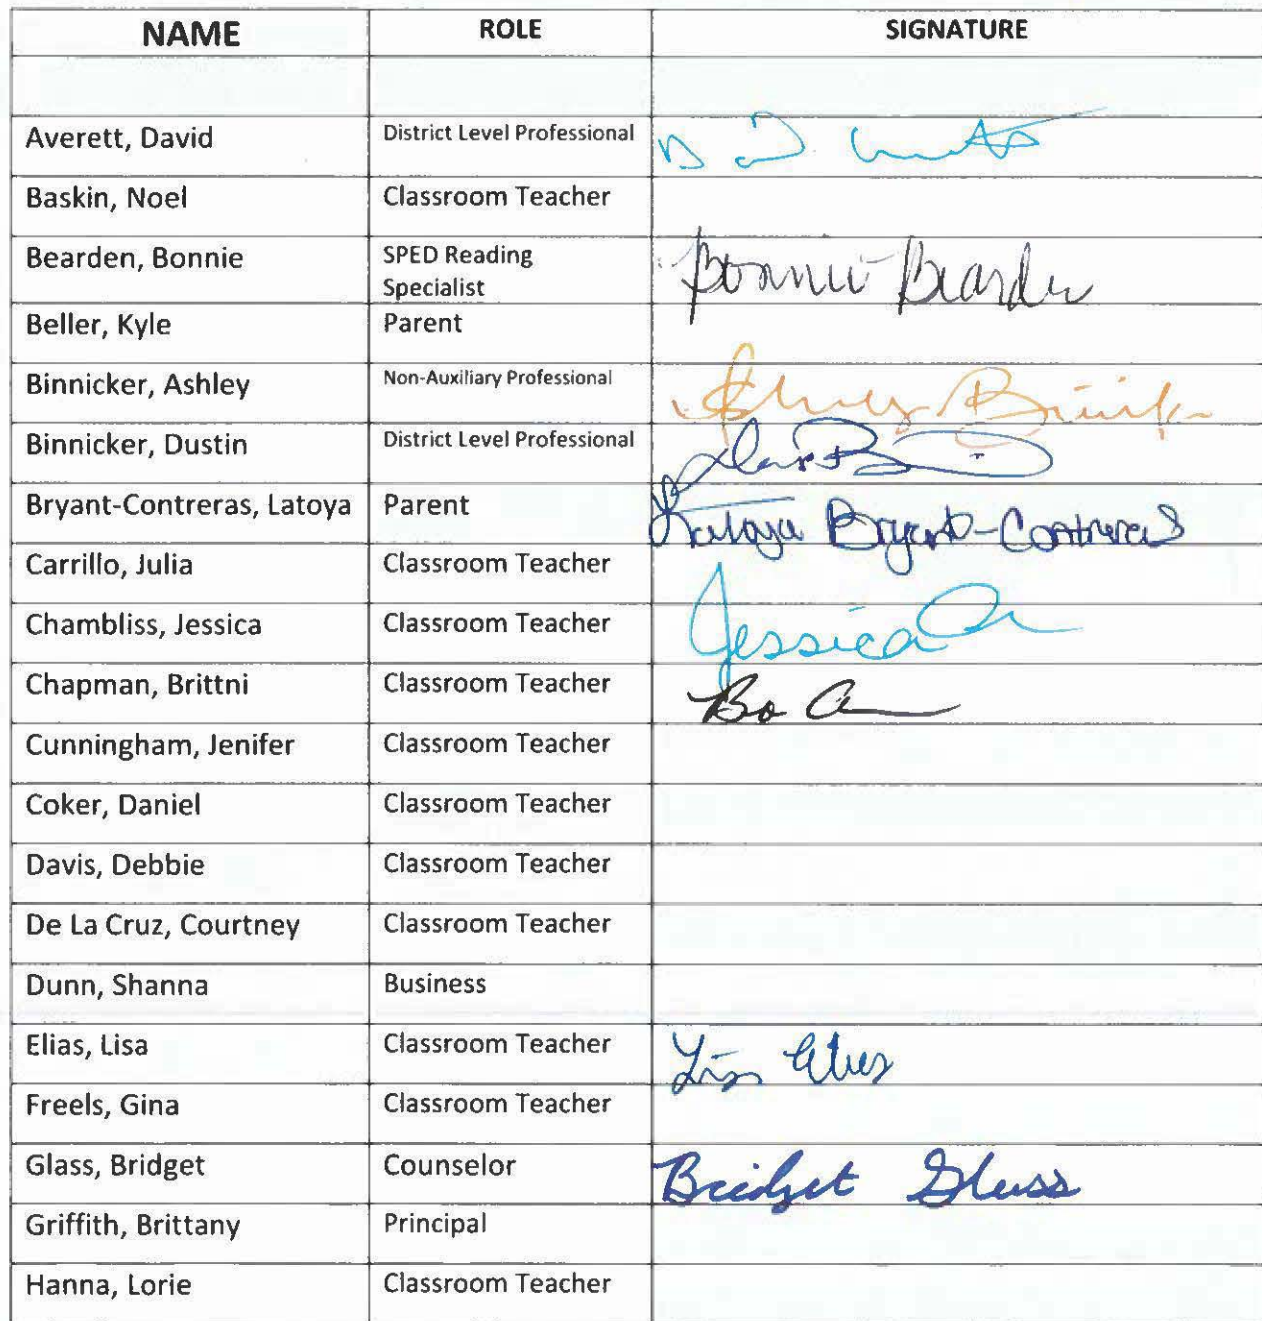 NAME ROLE SIGNATURE
Averett, David District Level Professional
Baskin, Noel Classroom Teacher
Bearden, Bonnie SPED Reading Specialist Bonnie Bearden
Beller, Kyle Parent
Binnicker, Ashley Non-Auxiliary Professional
Binnicker, Dustin District Level Professional
Bryant-Contreras, Latoya Parent Latoya Bryant-Contreras
Carrillo, Julia Classroom Teacher
Chambliss, Jessica Classroom Teacher Jessica
Chapman, Brittni Classroom Teacher
Cunningham, Jenifer Classroom Teacher
Coker, Daniel Classroom Teacher
Davis, Debbie Classroom Teacher
De La Cruz, Courtney Classroom Teacher
Dunn, Shanna Business
Elias, Lisa Classroom Teacher Lisa Elias
Freels, Gina Classroom Teacher
Glass, Bridget Counselor Bridget Glass
Griffith, Brittany Principal
Hanna, Lorie Classroom Teacher